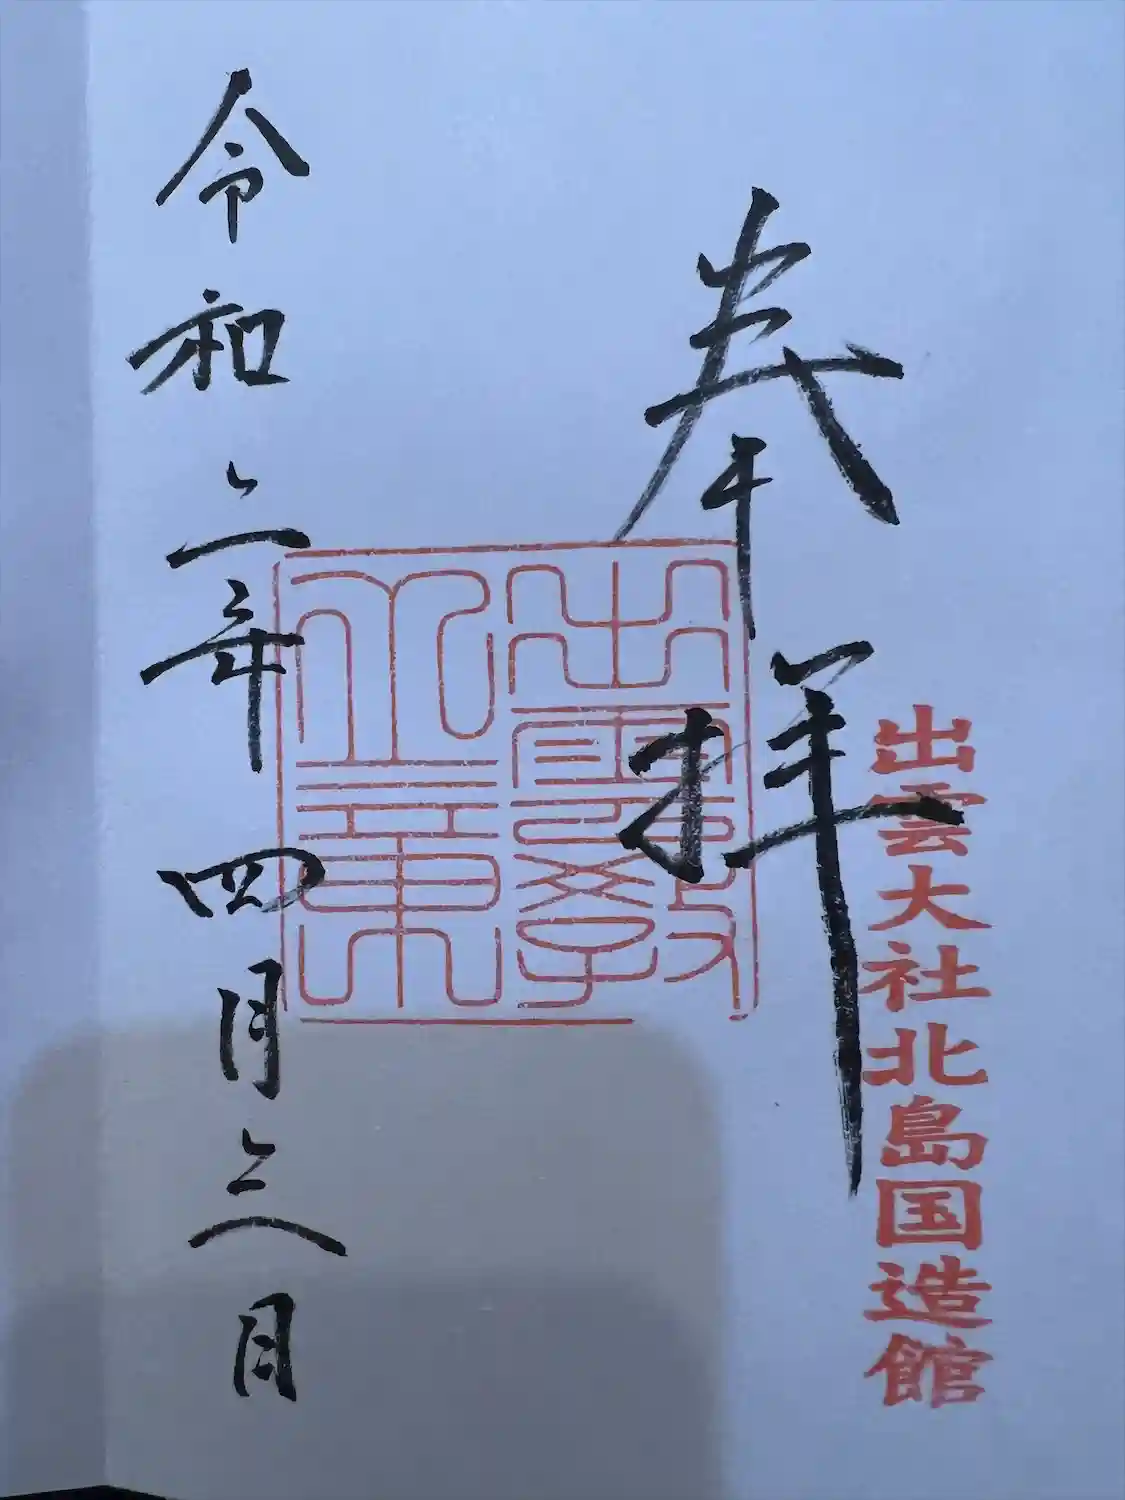 出雲大社北島国造館
奉拝
出雲教
令和二年四月三日